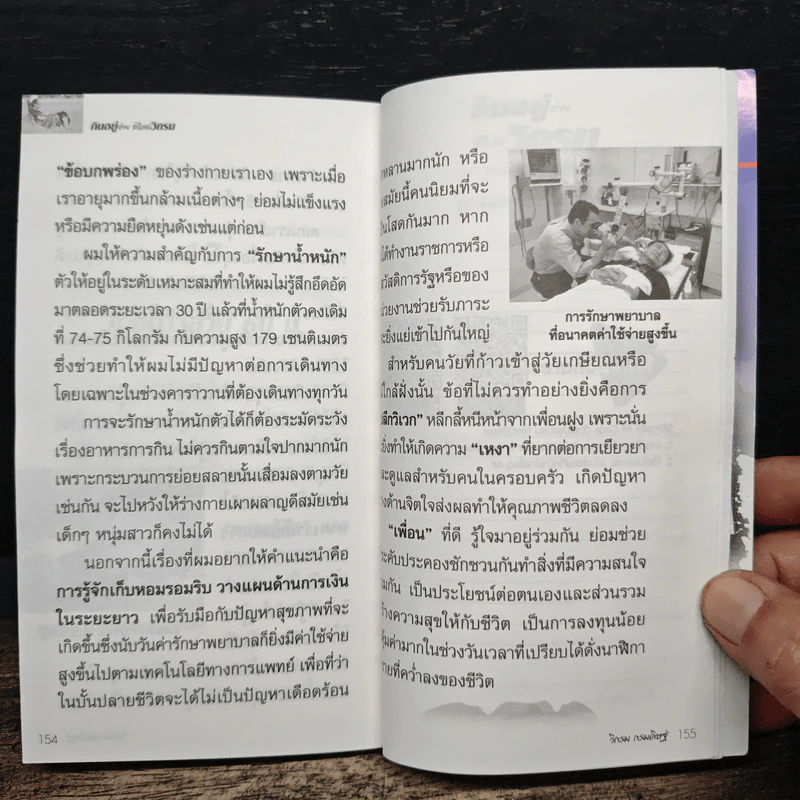 กินอยู่อย่าง สไตล์วิกรม
"ข้อบกพร่อง" ของร่างกายเราเอง เพราะเมื่อ
เราอายุมากขึ้นกล้ามเนื้อต่างๆ ย่อมไม่แข็งแรง
หรือมีความยืดหยุ่นดังเช่นแต่ก่อน
ผมให้ความสำคัญกับการ "รักษาน้ำหนัก"
ตัวให้อยู่ในระดับเหมาะสมที่ทำให้ผมไม่รู้สึกอึดอัด
มาตลอดระยะเวลา 30 ปี แล้วที่น้ำหนักตัวคงเดิม
ที่ 74-75 กิโลกรัม กับความสูง 179 เซนติเมตร
ซึ่งช่วยทำให้ผมไม่มีปัญหาต่อการเดินทาง
โดยเฉพาะในช่วงคาราวานที่ต้องเดินทางทุกวัน
การจะรักษาน้ำหนักตัวได้ก็ต้องระมัดระวัง
เรื่องอาหารการกิน ไม่ควรกินตามใจปากมากนัก
เพราะกระบวนการย่อยสลายนั้นเสื่อมลงตามวัย
เช่นกัน จะไปหวังให้ร่างกายเผาผลาญดีสมัยเช่น
เด็กๆ หนุ่มสาวก็คงไม่ได้
นอกจากนี้เรื่องที่ผมอยากให้คำแนะนำคือ
การรู้จักเก็บหอมรอมริบ วางแผนด้านการเงิน
ในระยะยาว เพื่อรับมือกับปัญหาสุขภาพที่จะ
เกิดขึ้นซึ่งนับวันค่ารักษาพยาบาลก็ยิ่งมีค่าใช้จ่าย
สูงขึ้นไปตามเทคโนโลยีทางการแพทย์ เพื่อที่ว่า
ในบั้นปลายชีวิตจะได้ไม่เป็นปัญหาเดือดร้อน
154
หลานมากนัก หรือ
สมัยนี้คนนิยมที่จะ
ป็นโสดกันมาก หาก
ได้ทำงานราชการหรือ
วัสดิการรัฐหรือของ
น่วยงานช่วยรับภาระ
ะยิ่งแย่เข้าไปกันใหญ่
การรักษาพยาบาล
ที่อนาคตค่าใช้จ่ายสูงขึ้น
สำหรับคนวัยที่ก้าวเข้าสู่วัยเกษียณหรือ
ใกล้ฝั่งนั้น ข้อที่ไม่ควรทำอย่างยิ่งคือการ
ลีกวิเวก" หลีกลี้หนีหน้าจากเพื่อนฝูง เพราะนั่น
ยิ่งทำให้เกิดความ "เหงา" ที่ยากต่อการเยียวยา
ละดูแลสำหรับคนในครอบครัว เกิดปัญหา
างด้านจิตใจส่งผลทำให้คุณภาพชีวิตลดลง
"เพื่อน" ที่ดี รู้ใจมาอยู่ร่วมกัน ย่อมช่วย
ะคับประคองชักชวนกันทำสิ่งที่มีความสนใจ
มกัน เป็นประโยชน์ต่อตนเองและส่วนรวม
ร้างความสุขให้กับชีวิต เป็นการลงทุนน้อย
คุ้มค่ามากในช่วงวันเวลาที่เปรียบได้ดั่งนาฬิกา
ายที่คว่ำลงของชีวิต
วิกรม กรมดิษฐ์ 155